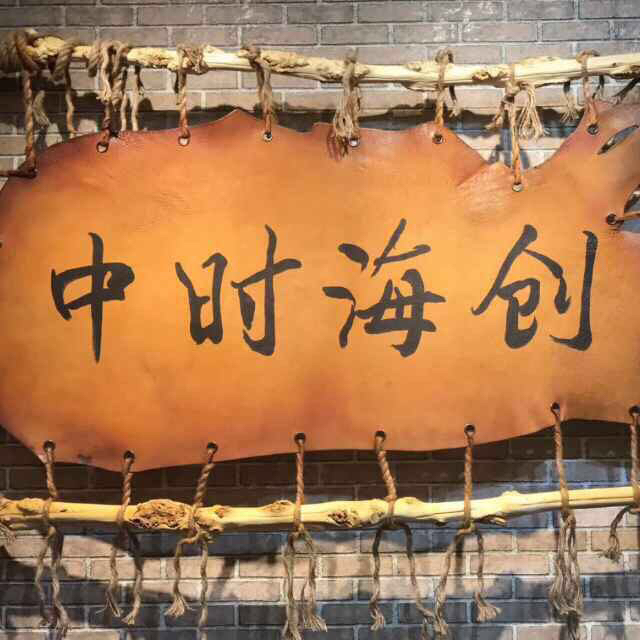 中时海创